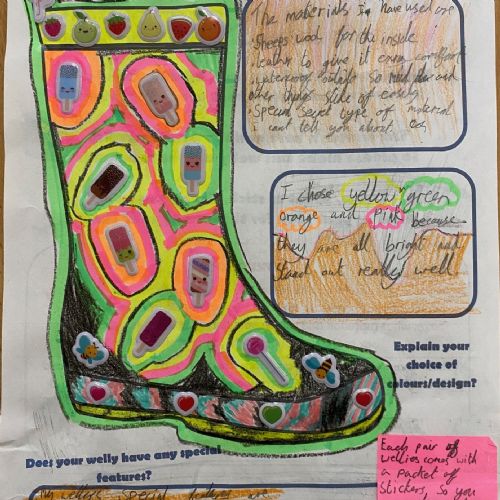 The materials I have used are
Sheeps wool for the inside
leather to give it
waterproof outside so and
other things slide of easily
Special Secret type of material
I cant tell you about.
I chose yellow, green
orange and pink because
they are all bright and
stand out really well.
Explain your
choice of
colours/design?
Does your welly have any special
features?
Each pair of
wellies comes with
a packet of
Stickers So you
special features are